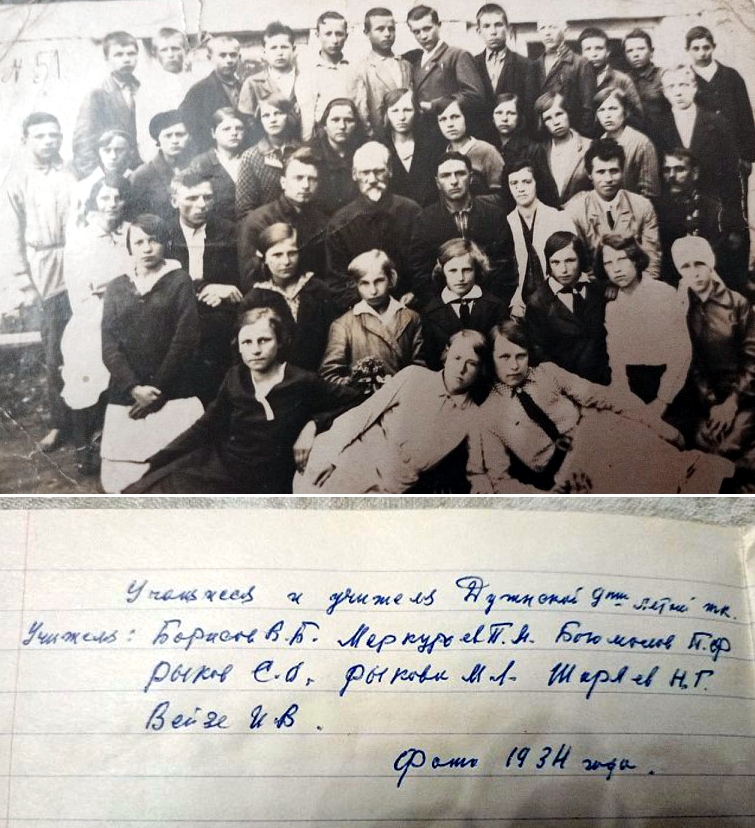 № 51
Учащиеся и учителя Дужнской 9ти летней шк.
Учителя: Борисов В.Б. Меркурьев П.М. П.Ф
Рыков С.О. Рыкова М.Л. Шаряев Н.Г.
Вейзе И.В.
Фото 1934 года.